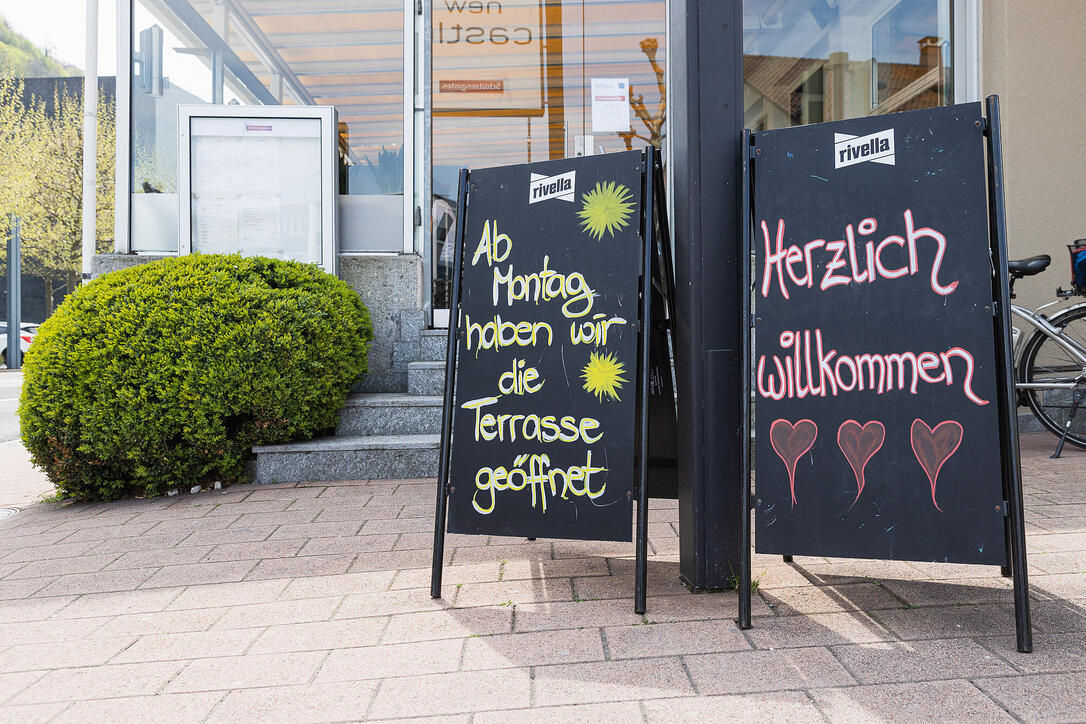 new
castl
Schützengarten
rivella
Ab
Montag
haben wir
die
Terrasse
geöffnet
rivella
Herzlich
willkommen